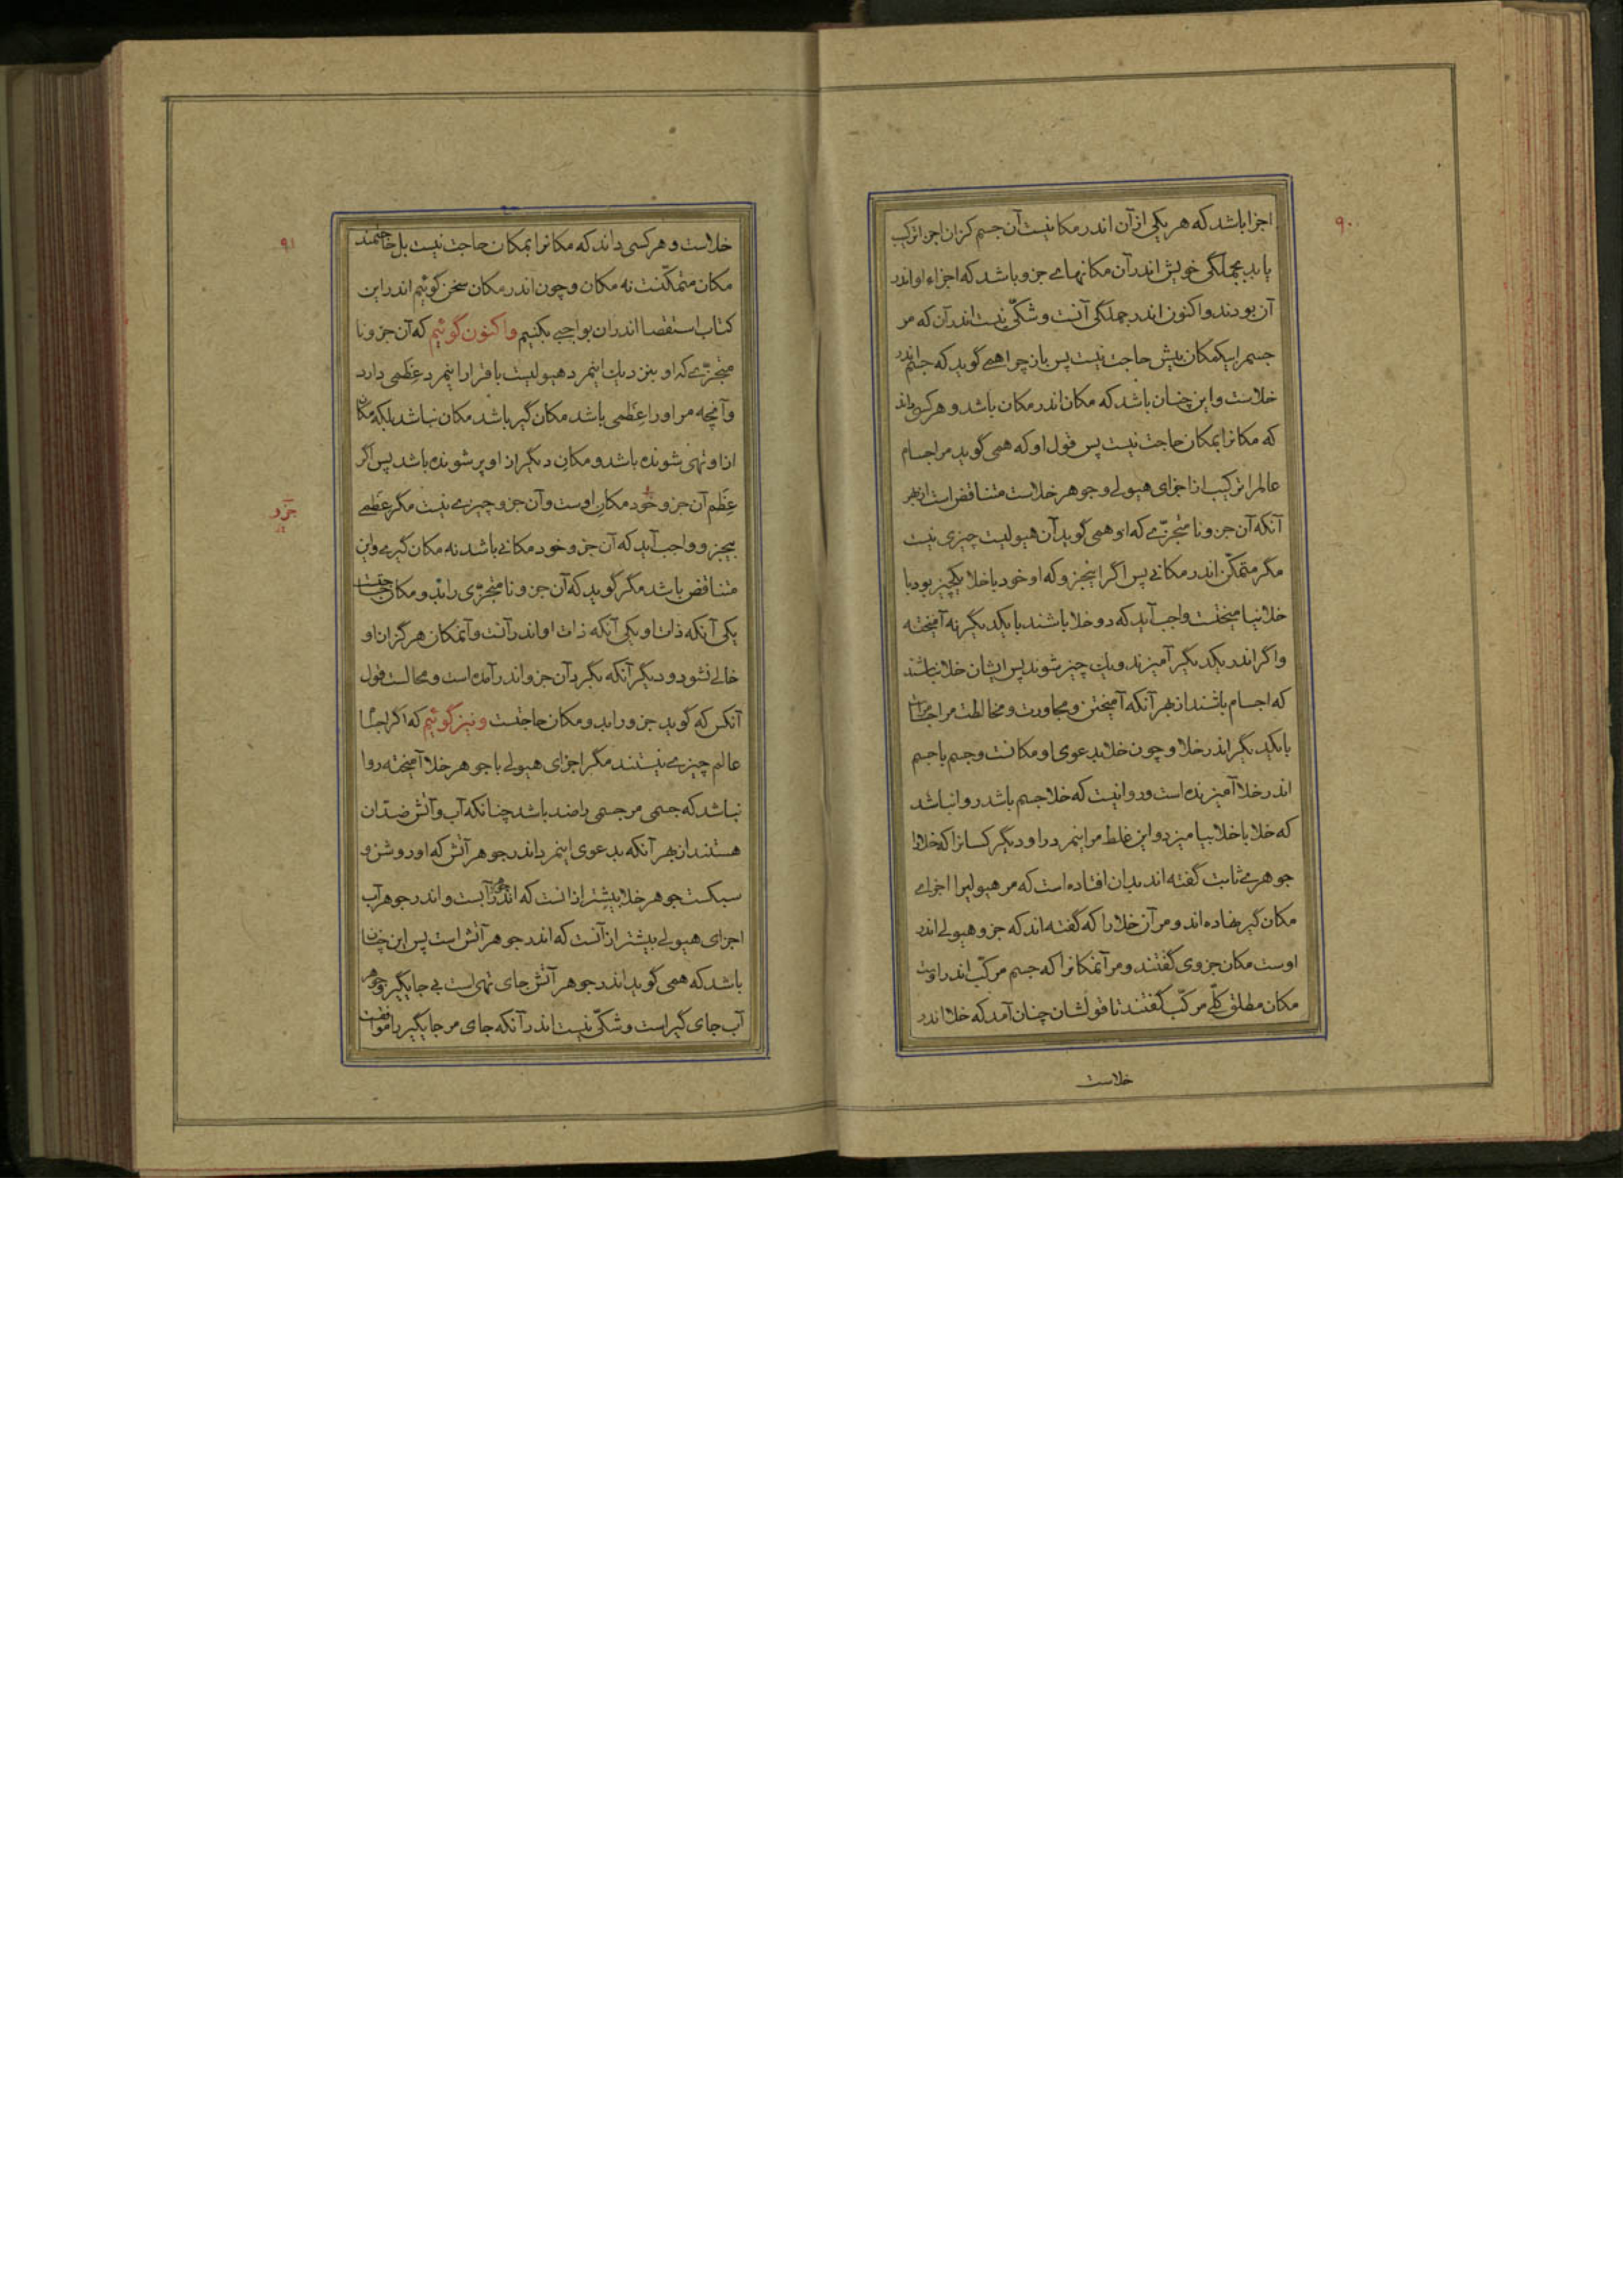 ۹۰
اجزا باشد که هر یکی از آن اندر مکانیست آن جسم کزان اجزا ترکیب
یابد بجملگی خویش اندر آن مکانهای جزو باشد که اجزاء او اندر
آن بودند و اکنون اندر جملگی آنست و شکّی نیست اندر آن که مر
جسم را بیکمکان بیش حاجت نیست پس باز چرا همی گوید که جسم اندر
خلاست و این چنان باشد که مکان اندر مکان باشد و هر کسی داند
که مکانرا بمکان حاجت نیست پس قول او که همی گوید مر اجسام
عالمرا ترکیب از اجزای هیولی و جوهر خلاست متناقض است از بهر
آنکه آن جزو نا متجزّی که او همی گوید آن هیولیست چیزی نیست
مگر متمکّن اندر مکانی پس اگر اینجزو که او خود با خلا یکچیز بود با
خلا نیامیخت واجب آید که دو خلا باشند با یکدیگر نه آمیخته
و اگر اندر یکدیگر آمیزند و یک چیز شوند پس ایشان خلا نباشند
که اجسام باشند از بهر آنکه آمیختن و مجاورت و مخالطت مر اجسام راست
با یکدیگر اندر خلا و چون خلا بدعوی او مکانست و جسم با جسم
اندر خلا آمیزنده است و روا نیست که خلا جسم باشد روا نباشد
که خلا با خلا بیامیزد و این غلط مر اینمرد را و دیگر کسانرا که خلا را
جوهری ثابت گفته اند بدان افتاده است که مر هیولیرا اجزای
مکان گیر نهاده اند و مر آن خلا را که گفته اند که جزو هیولی اندر
اوست مکان جزوی گفتند و مر آنمکانرا که جسم مرکّب اندر اوست
مکان مطلق کلّی مرکّب گفتند تا قولشان چنان آمد که خلا اندر
خلاست
۹۱
خلاست و هر کسی داند که مکانرا بمکان حاجت نیست بل حاجتمند
مکان متمکّنست نه مکان و چون اندر مکان سخن گوئیم اندر این
کتاب استقصا اندران بواجبی بکنیم و اکنون گوئیم که آن جزو نا
متجزّی که او بنزدیک اینمرد هیولیست باقرار اینمرد عِظَمی دارد
و آنچه مر او را عِظَمی باشد مکان گیر باشد مکان نباشد بلکه مکان
از او تهی شونده باشد و مکان دیگران او پر شونده باشد پس اگر
عِظَم آن جزو خود مکان اوست و آن جزو چیزی نیست مگر عِظَمی
جزو
بیجزو واجب آید که آن جزو خود مکانی باشد نه مکان گیری و این
متناقض باشد مگر گوید که آن جزو نا متجزّی را بدو مکان حاجتست
یکی آنکه ذات او یکی آنکه ذات او اندر آنست و آنمکان هرگز از او
خالی نشود و دیگر آنکه بگرد آن جزو اندر آمده است و محالست قول
آنکس که گوید جزو را بدو مکان حاجتست و نیز گوئیم که اگر اجسام
عالم چیزی نیستند مگر اجزای هیولی با جوهر خلا آمیخته روا
نباشد که جسمی مر جسمی را ضد باشد چنانکه آب و آتش ضدّان
هستند از بهر آنکه بدعوی اینمرد اندر جوهر آتش که او روشن و
سبکست جوهر خلا بیشتر از انست که اندر جوهر آبست و اندر جوهر آب
اجزای هیولی بیشتر از آنست که اندر جوهر آتش است پس این چنان
باشد که همی گوید اندر جوهر آتش جای تهی است بی جایگیر و جوهر
آب جای گیر است و شکّی نیست اندر آنکه جای مر جایگیر را موافقست